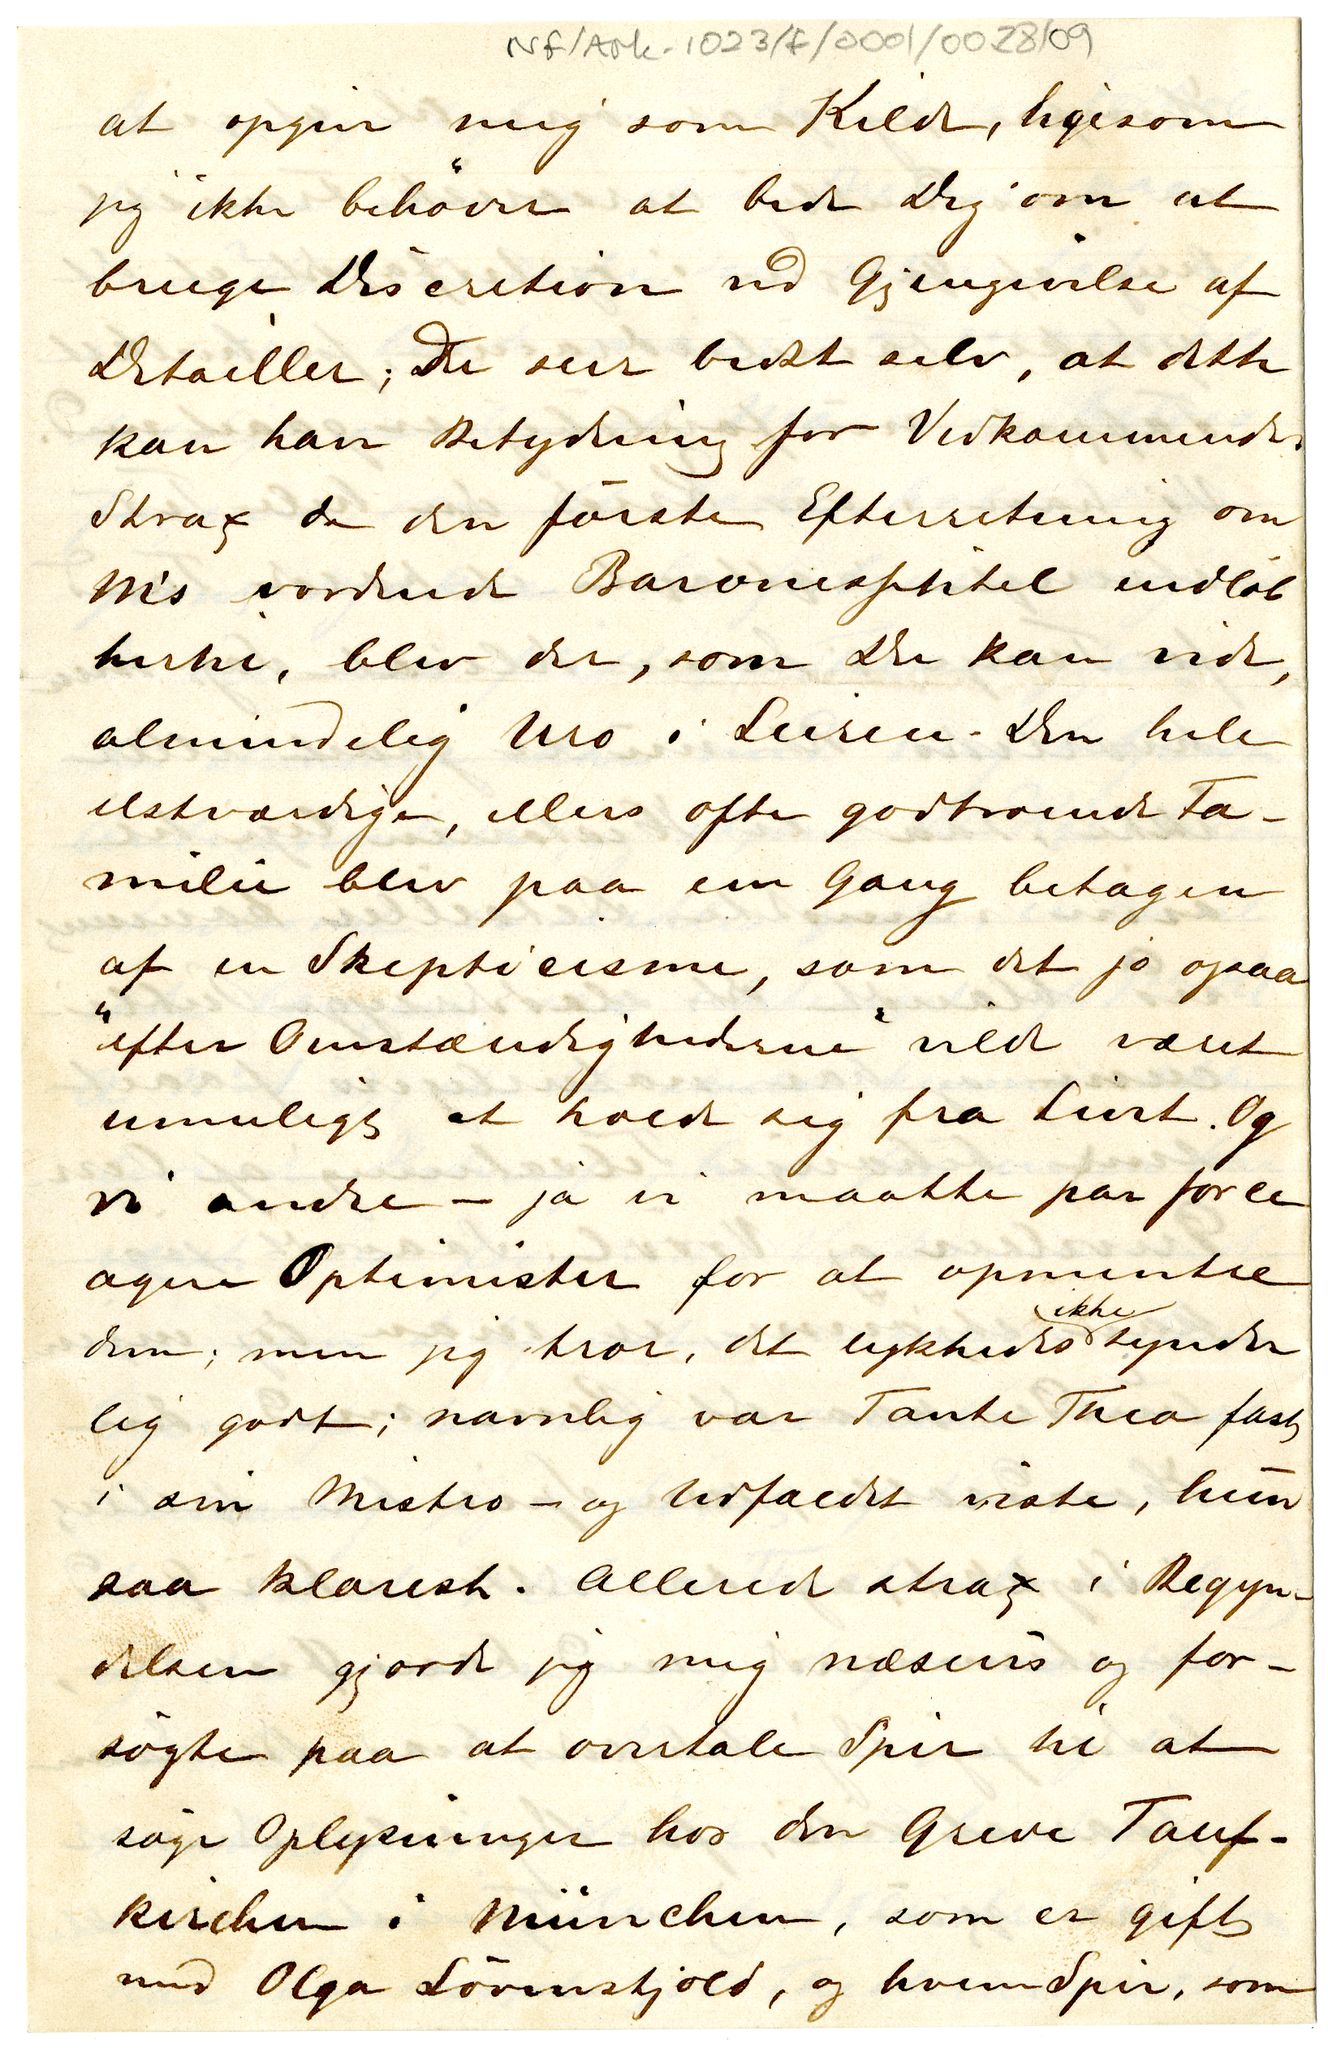 NF/Ark-1023/F/0001/0028/09
at opgive mig som Kilde, ligesom
jeg ikke behöver at bede Dig om at
bruge Discretion ved Gjengivelse af
Detailler; Du seer bedst selv, at dette
kan have Betydning for Vedkommende.
Strax da den förste Efterretning om
M's vordende Baronesstitel indlöb
hertil, blev der, som Du kan vide,
almindelig Uro i Leiren. Den hele
elskværdige, ellers ofte godtroende Fa-
milie blev paa en Gang betagen
af en Skepticisme, som det jo ogsaa
"efter Omstændighederne" vilde været
umuligt at holde sig fra Livet. Og
vi andre – ja vi maatte par force
agere Optimister for at opmuntre
dem; men jeg tror, det lykkedes ikke synder
lig godt; navnlig var Tante Thea fast
i sin Mistro – og Udfaldet viste, hun
saa klarest. Allerede strax i Begyn-
delsen gjorde jeg mig næsviis og for-
sögte paa at overtale Spir til at
söge Oplysninger hos den Greve Tauf-
kirchen i München, som er gift
med Olga Lövenskjold, og hvem Spir, som